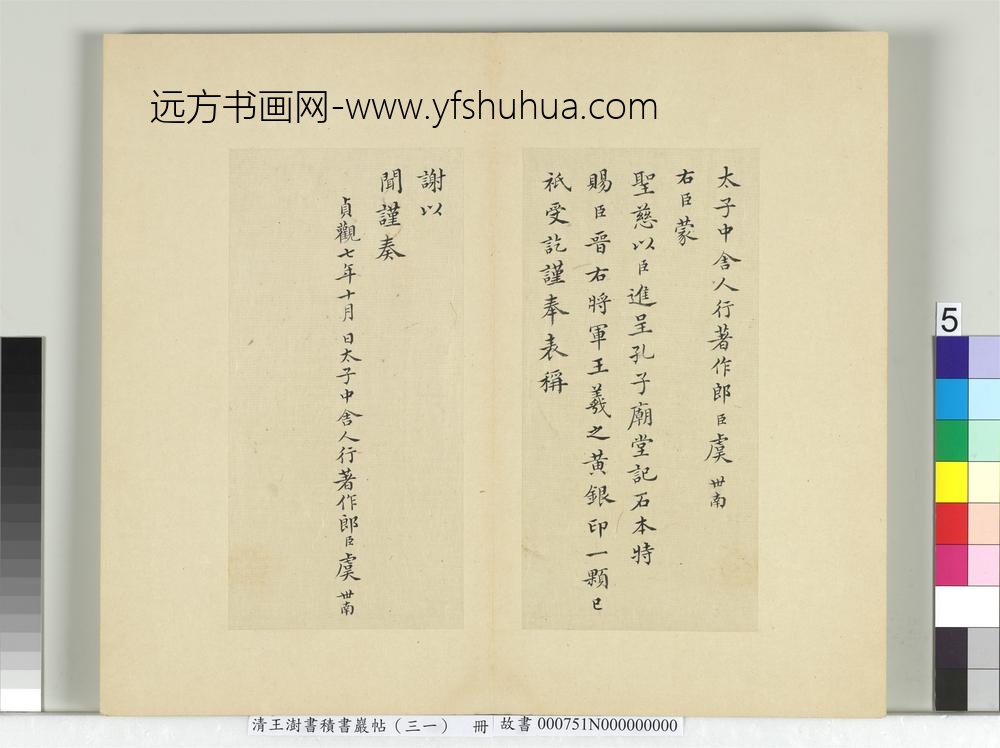 远方书画网-www.yfshuhua.com
太子中舍人行著作郎臣虞世南
右臣蒙
聖慈以臣進呈孔子廟堂記石本特
賜臣晉右將軍王羲之黃銀印一顆已
祇受訖謹奉表稱
謝以
聞謹奏
貞觀七年十月 日太子中舍人行著作郎臣虞世南
5
清王澍書積書巖帖（三一） 冊
故書 000751N000000000